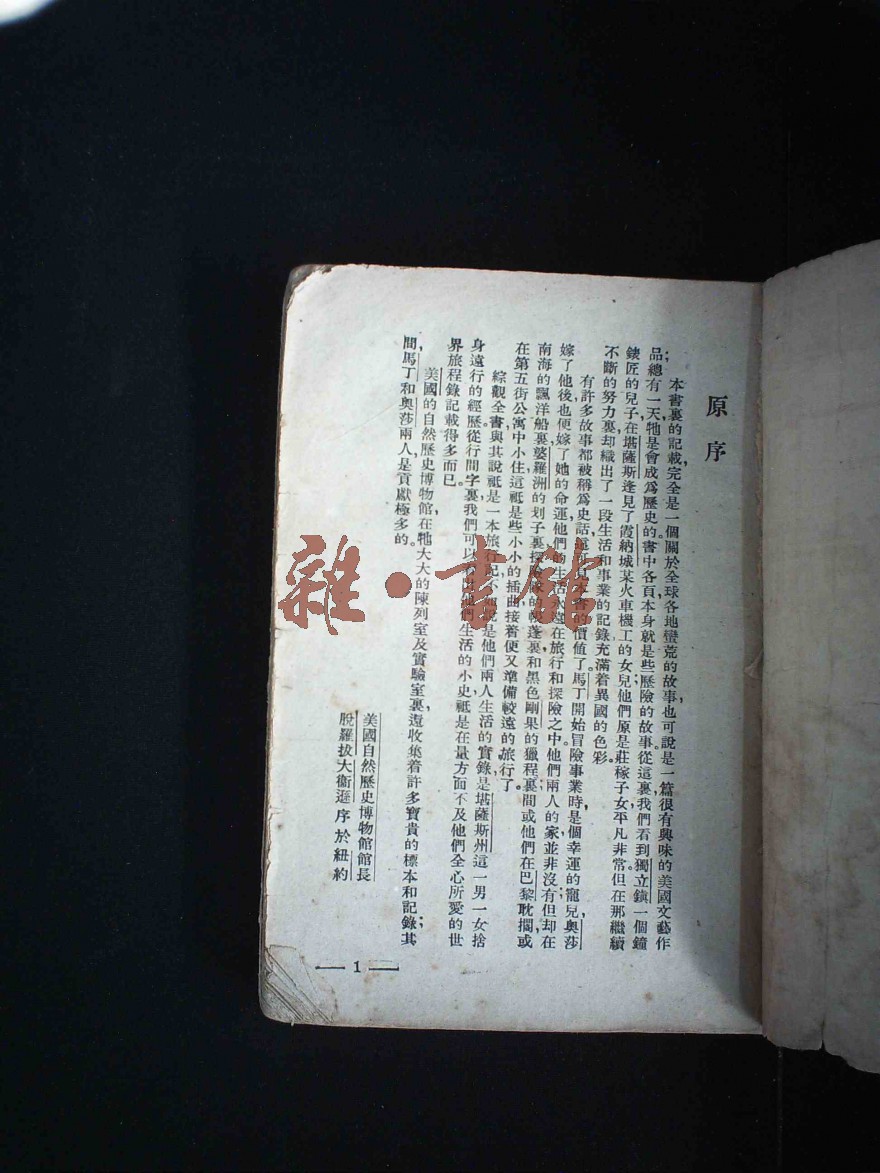 原序
本書裏的記載完全是一個關於全球各地蠻荒的故事，也可說是一篇很有興味的美國文藝作
品；總有一天，牠是會成爲歷史的。書中各頁本身就是些歷險的故事。從這裏我們看到獨立鎮一個鐘
錶匠的兒子，在堪薩斯逢見了霞納城某火車機工的女兒；他們原是莊稼子女，平凡非常。但在那繼續
不斷的努力裏，却織出了一段生活和事業的記錄，充滿着異國的色彩。
有許多故事都被稱爲史話，可見本書的價値了。馬丁開始冒險事業時，是個幸運的寵兒，奧莎
嫁了他後，也便嫁了她的命運。他們的生活永遠在旅行和探險之中。他們兩人的家並非沒有，但却在
南海的飄洋船裏，婆羅洲的划子裏，探險隊的帳蓬裏，和黑色剛果的獵程裏；間或他們在巴黎耽擱，或
在第五街公寓中小住，這祇是些小小的插曲，接着便又準備較遠的旅行了。
綜觀全書，與其說祇是一本旅行記，不如說是他們兩人生活的實錄，是堪薩斯州這一男一女捨
身遠行的經歷。從行間字裏，我們可以看出他們生活的小史，祇是在量方面不及他們全心所愛的世
界旅程錄記載得多而已。
美國的自然歷史博物館，在牠大大的陳列室及實驗室裏，還收集着許多寶貴的標本和記錄；其
間，馬丁和奧莎兩人，是貢獻極多的。
美國自然歷史博物館館長
脫羅拔大衞遜序於紐約
1
雜·書館